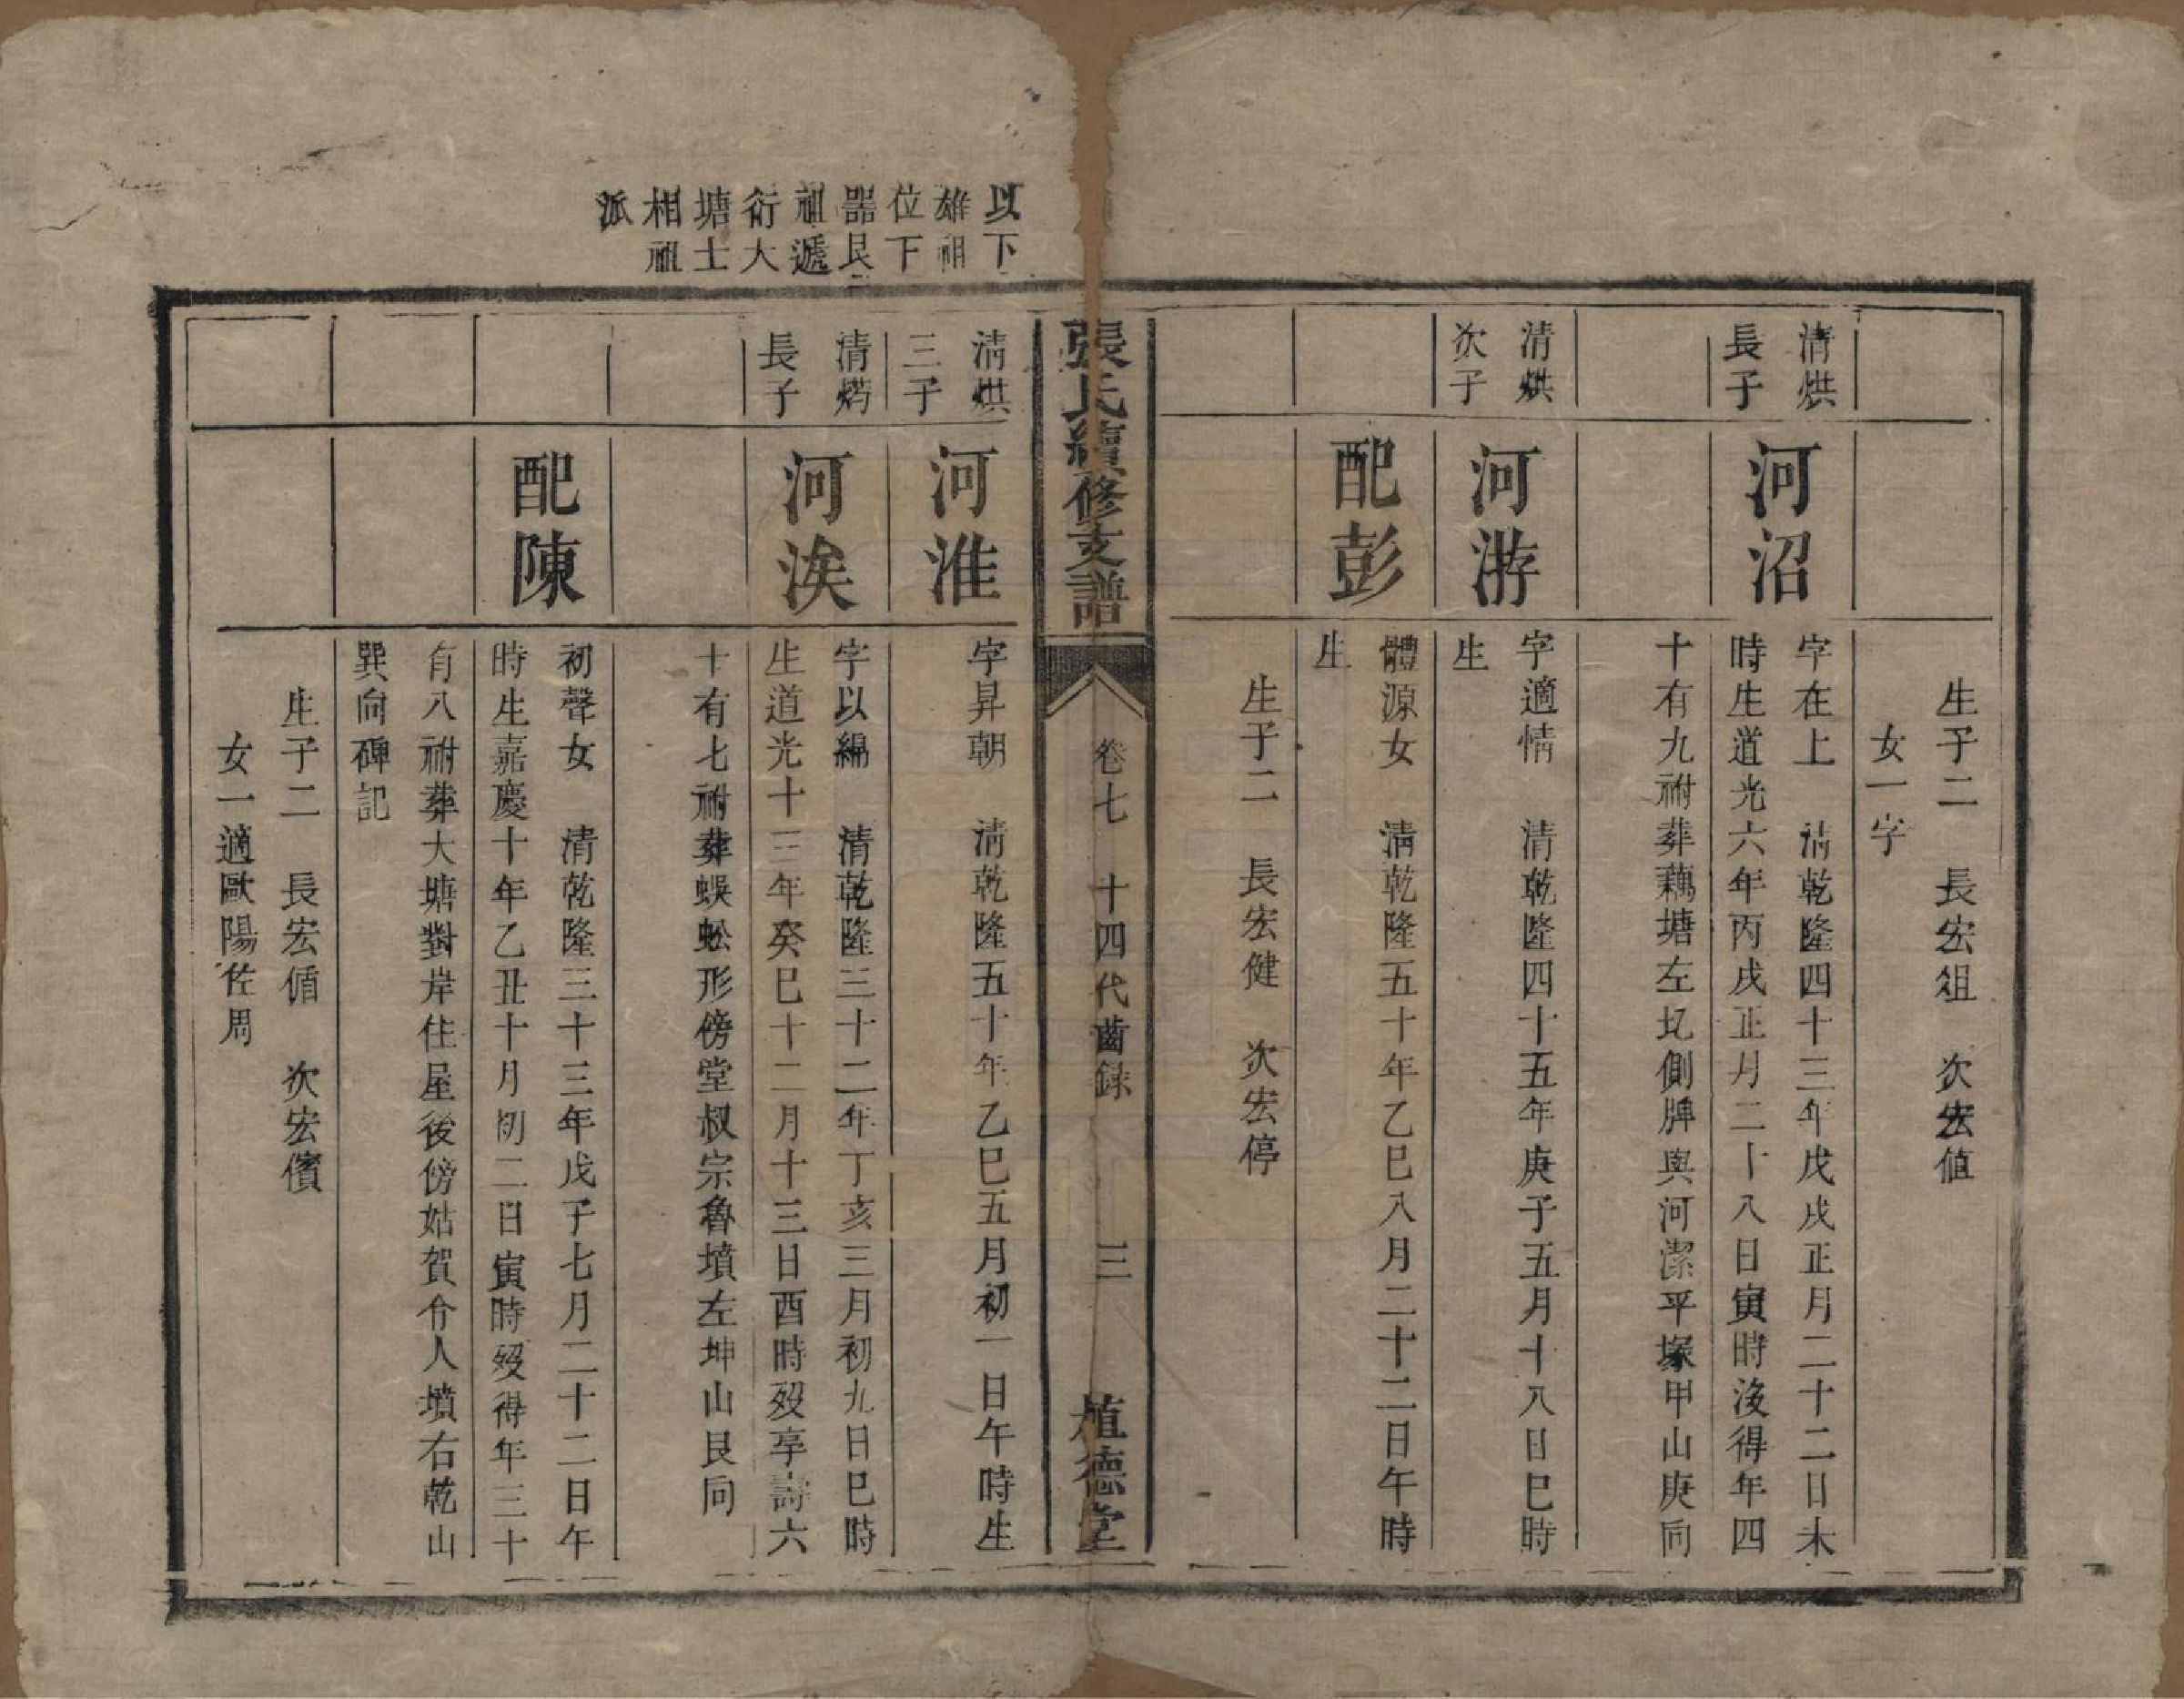 生子二　長宏俎　次宏値
女一字
清烘
長子
河沼
字在上　清乾隆四十三年戊戌正月二十二日未
時生道光六年丙戌正月二十八日寅時没得年四
十有九祔葬藕塘左圠側牌與河潔平塚甲山庚向
清烘
次子
河游
字適情　清乾隆四十五年庚子五月十八日巳時
生
配彭
體源女　清乾隆五十年乙巳八月二十二日午時
生
生子二　長宏健　次宏停
張氏續修支譜
卷七　十四代齒錄
三
植德堂
以下
雄祖
位下
器艮
祖遞
衍大
塘士
相祖
派
清烘
三子
河淮
字昇朝　清乾隆五十年乙巳五月初一日午時生
清
長子
河涘
字以綿　清乾隆三十二年丁亥三月初九日巳時
生道光十三年癸巳十二月十三日酉時殁享壽六
十有七祔葬蜈蚣形傍堂叔宗魯墳左坤山艮向
配陳
初聲女　清乾隆三十三年戊子七月二十二日午
時生嘉慶十年乙丑十月初二日寅時殁得年三十
有八祔葬大塘對岸住屋後傍姑賀介人墳右乾山
巽向碑記
生子二　長宏循　次宏儐
女一適歐陽佐周